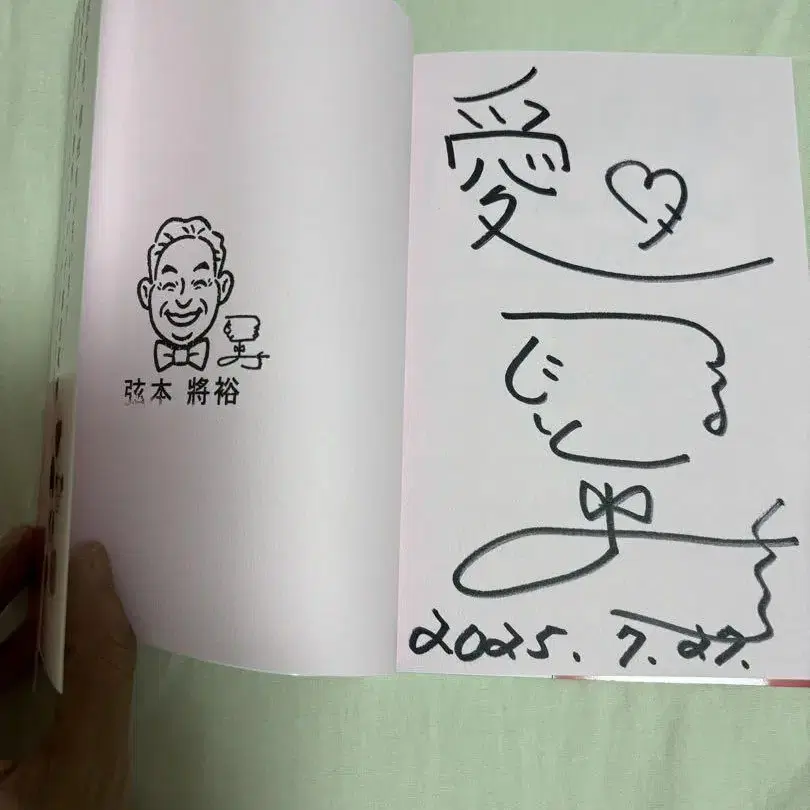 弦本 將裕
愛
2025. 7. 27.